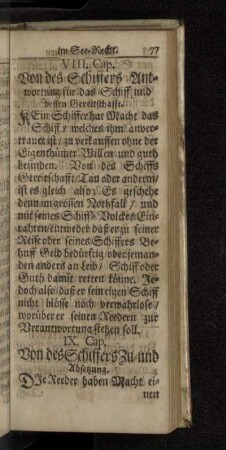 im See-Recht. 77
VIII. Cap.
Von des Schiffers Ant-
wortung für das Schiff und
dessen Gereitschafft.
KEin Schiffer hat Macht das
Schiff / welches ihm anver-
trauet ist / zu verkauffen ohne der
Eigenthümer Willen und guth
befinden. Von des Schiffs
Gereitschafft / Tau oder andern /
ist es gleich also: Es geschehe
denn im grossen Nothfall / und
mit seines Schiff-Volckes Ein-
rahten / entweder daß er zu seiner
Reise oder seines Schiffers Be-
huff Geld bedürfftig / oder jeman-
den anders an Leib / Schiff oder
Guth damit retten könne. Je-
doch also / daß er sein eigen Schiff
nicht blösse noch verwahrlose /
worüber er seinen Reedern zur
Verantwortung stehen soll.
IX. Cap.
Von des Schiffers Zu- und
Absetzung.
DIe Reeder haben Macht ei-
nen